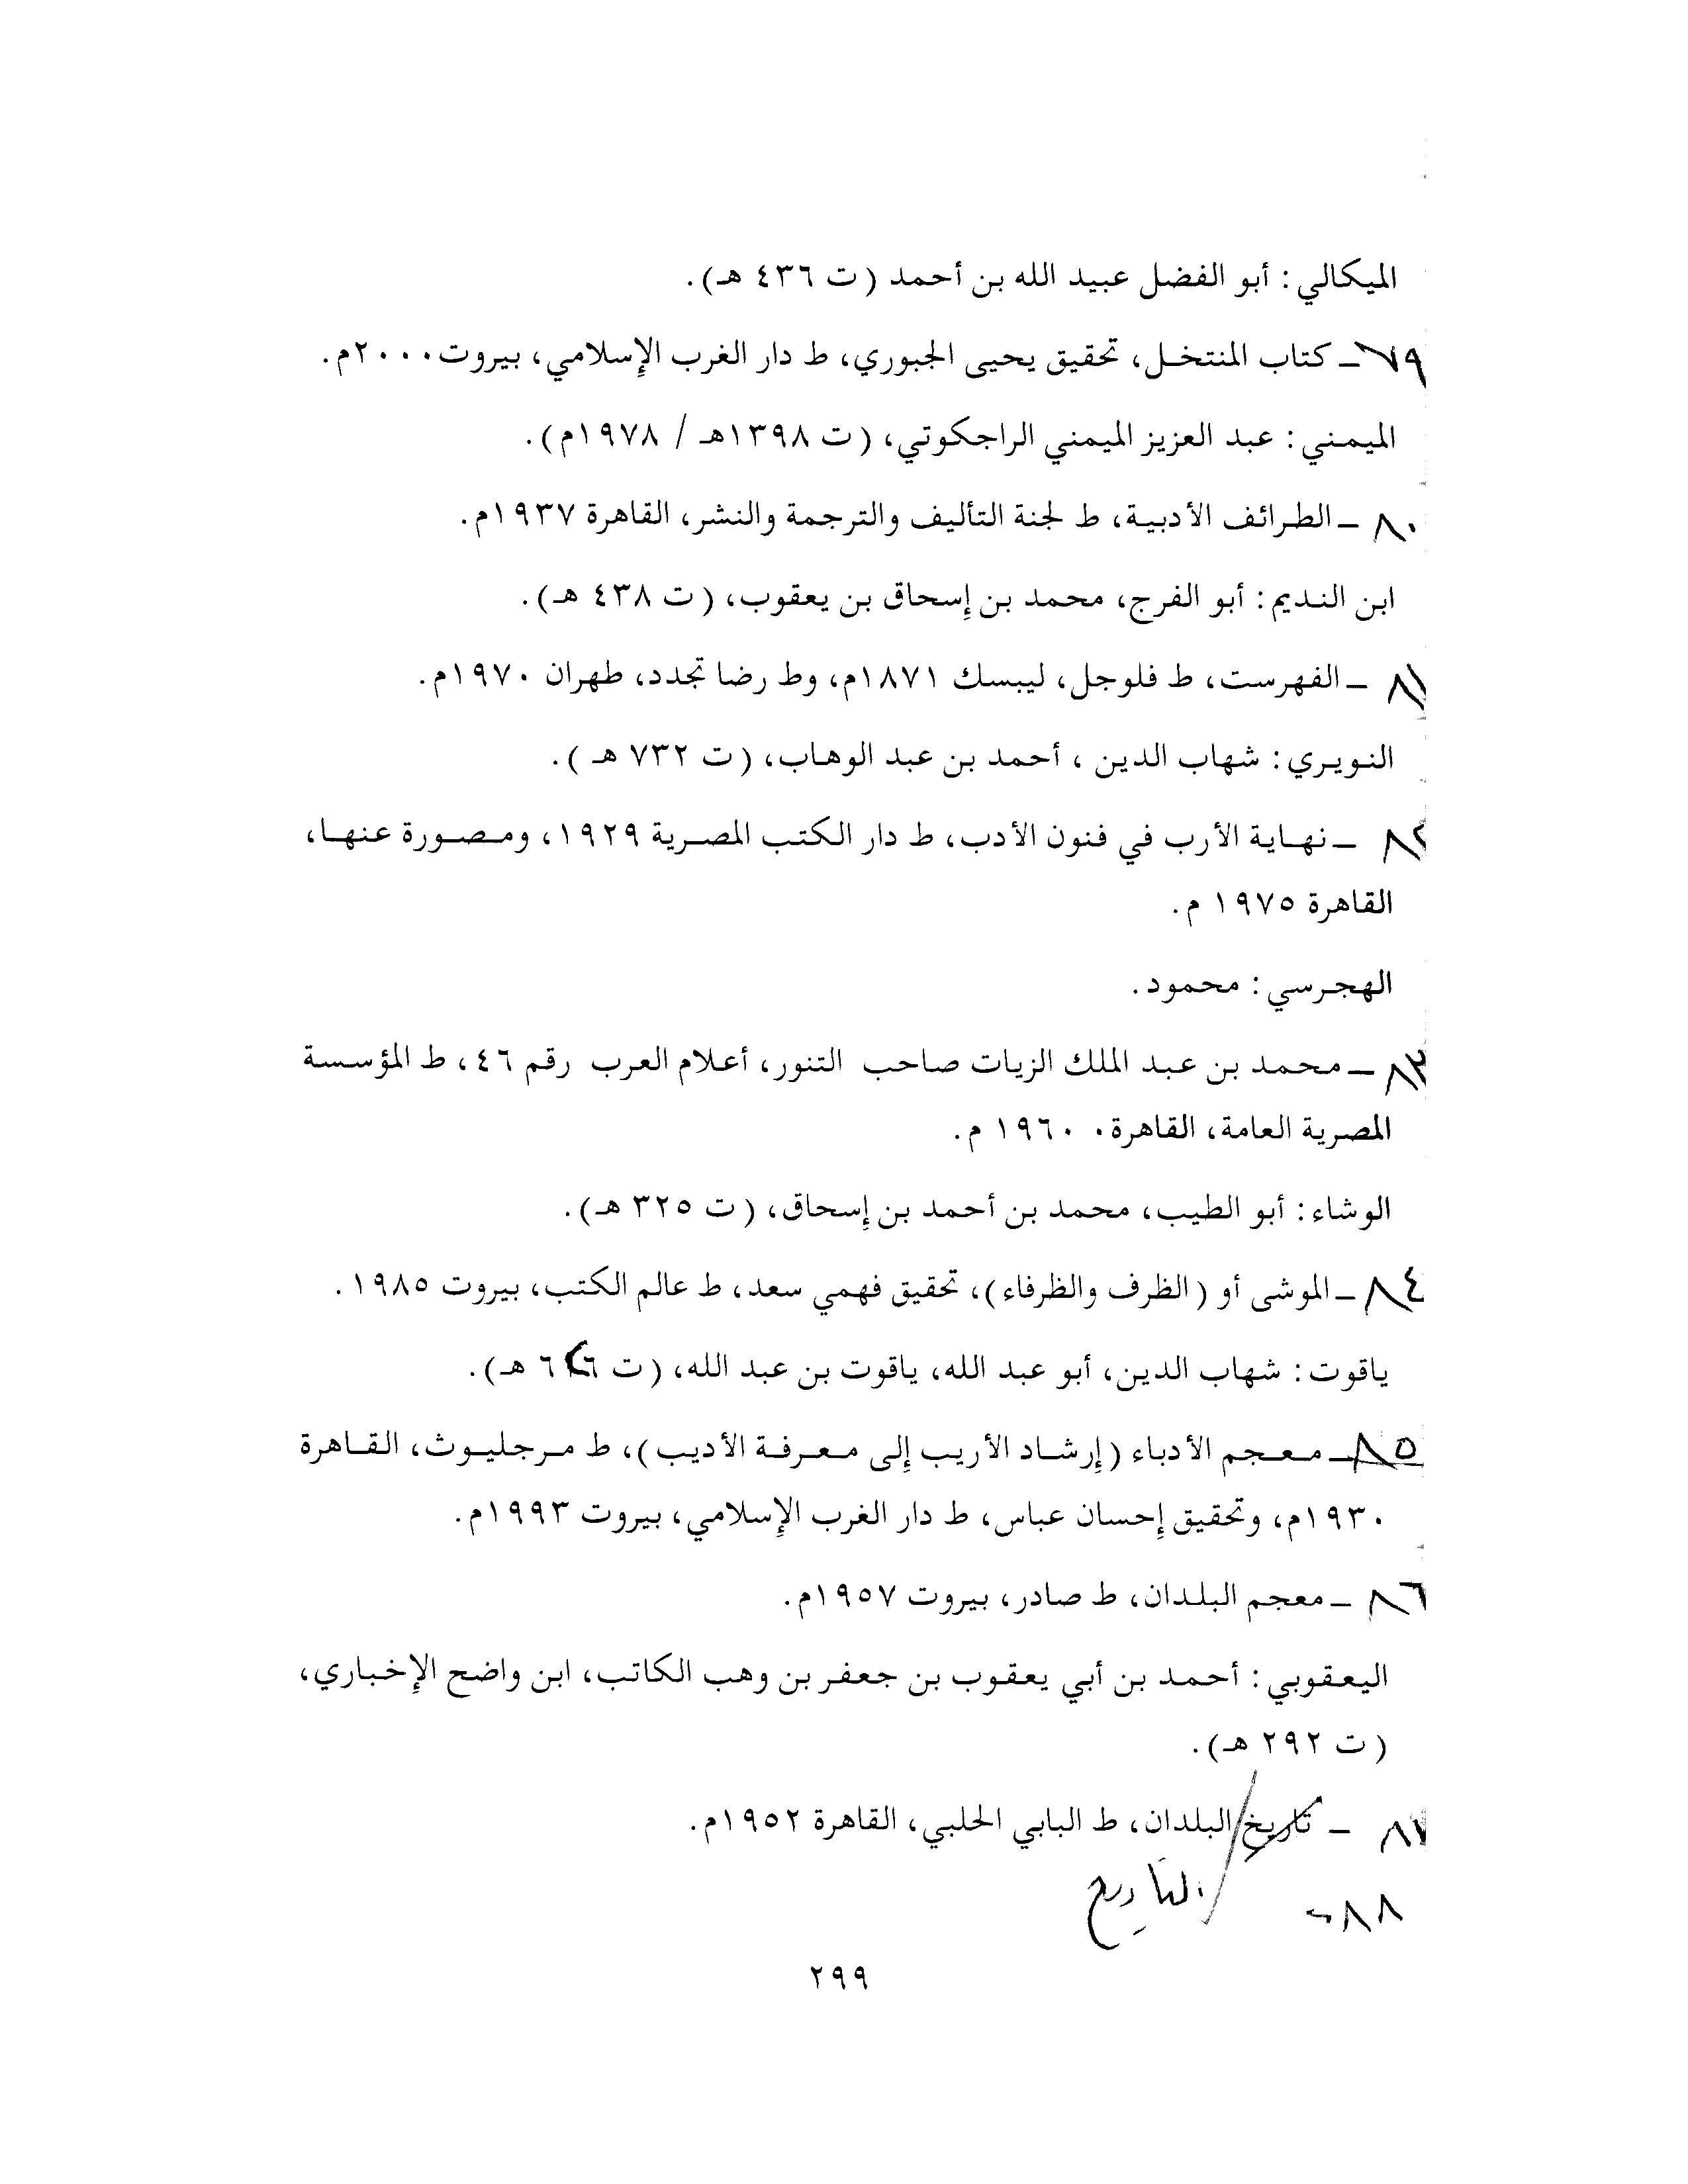 الميكالي: أبو الفضل عبيد الله بن أحمد (ت ٤٣٦ هـ).
٧٩ ـ كتاب المنتخل، تحقيق يحيى الجبوري، ط دار الغرب الإسلامي، بيروت ٢٠٠٠م.
الميمني: عبد العزيز الميمني الراجكوتي، (ت ١٣٩٨هـ / ١٩٧٨م).
٨٠ ـ الطرائف الأدبية، ط لجنة التأليف والترجمة والنشر، القاهرة ١٩٣٧م.
ابن النديم: أبو الفرج، محمد بن إسحاق بن يعقوب، (ت ٤٣٨ هـ).
٨١ ـ الفهرست، ط فلوجل، ليبسك ١٨٧١م، وط رضا تجدد، طهران ١٩٧٠م.
النويري: شهاب الدين، أحمد بن عبد الوهاب، (ت ٧٣٢ هـ).
٨٢ ـ نهاية الأرب في فنون الأدب، ط دار الكتب المصرية ١٩٢٩، ومصورة عنها،
القاهرة ١٩٧٥ م.
الهجرسي: محمود.
٨٣ ـ محمد بن عبد الملك الزيات صاحب التنور، أعلام العرب رقم ٤٦، ط المؤسسة
المصرية العامة، القاهرة. ١٩٦٠ م.
الوشاء: أبو الطيب، محمد بن أحمد بن إسحاق، (ت ٣٢٥ هـ).
٨٤ ـ الموشى أو (الظرف والظرفاء)، تحقيق فهمي سعد، ط عالم الكتب، بيروت ١٩٨٥.
ياقوت: شهاب الدين، أبو عبد الله، ياقوت بن عبد الله، (ت ٦٢٦ هـ).
٨٥ ـ معجم الأدباء (إرشاد الأريب إلى معرفة الأديب)، ط مرجليوث، القاهرة
١٩٣٠م، وتحقيق إحسان عباس، ط دار الغرب الإسلامي، بيروت ١٩٩٣م.
٨٦ ـ معجم البلدان، ط صادر، بيروت ١٩٥٧م.
اليعقوبي: أحمد بن أبي يعقوب بن جعفر بن وهب الكاتب، ابن واضح الإخباري،
(ت ٢٩٢ هـ).
٨٧ ـ تاريخ البلدان، ط البابي الحلبي، القاهرة ١٩٥٢م.
٨٨ - التاريخ
٢٩٩